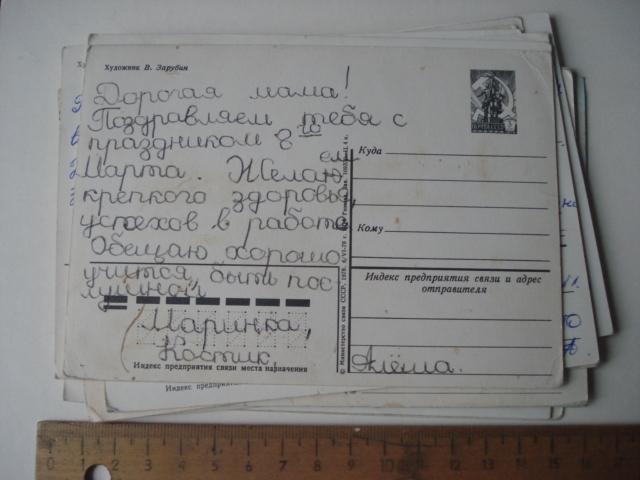 Художник В. Зарубин
Дорогая мама!
Поздравляем тебя с
праздником 8 го
Марта. Желаю ем
крепкого здоровья,
успехов в работе
Обещаю хорошо
учится, быть пос
лушной
Маринка,
Костик,
Алёша.
Куда
Кому
Индекс предприятия связи и адрес
отправителя
Индекс предприятия связи места назначения
© Министерство связи СССР, 1978.
0 1 2 3 4 5 6 7 8 9 10 11 12 13 14 15 16 17